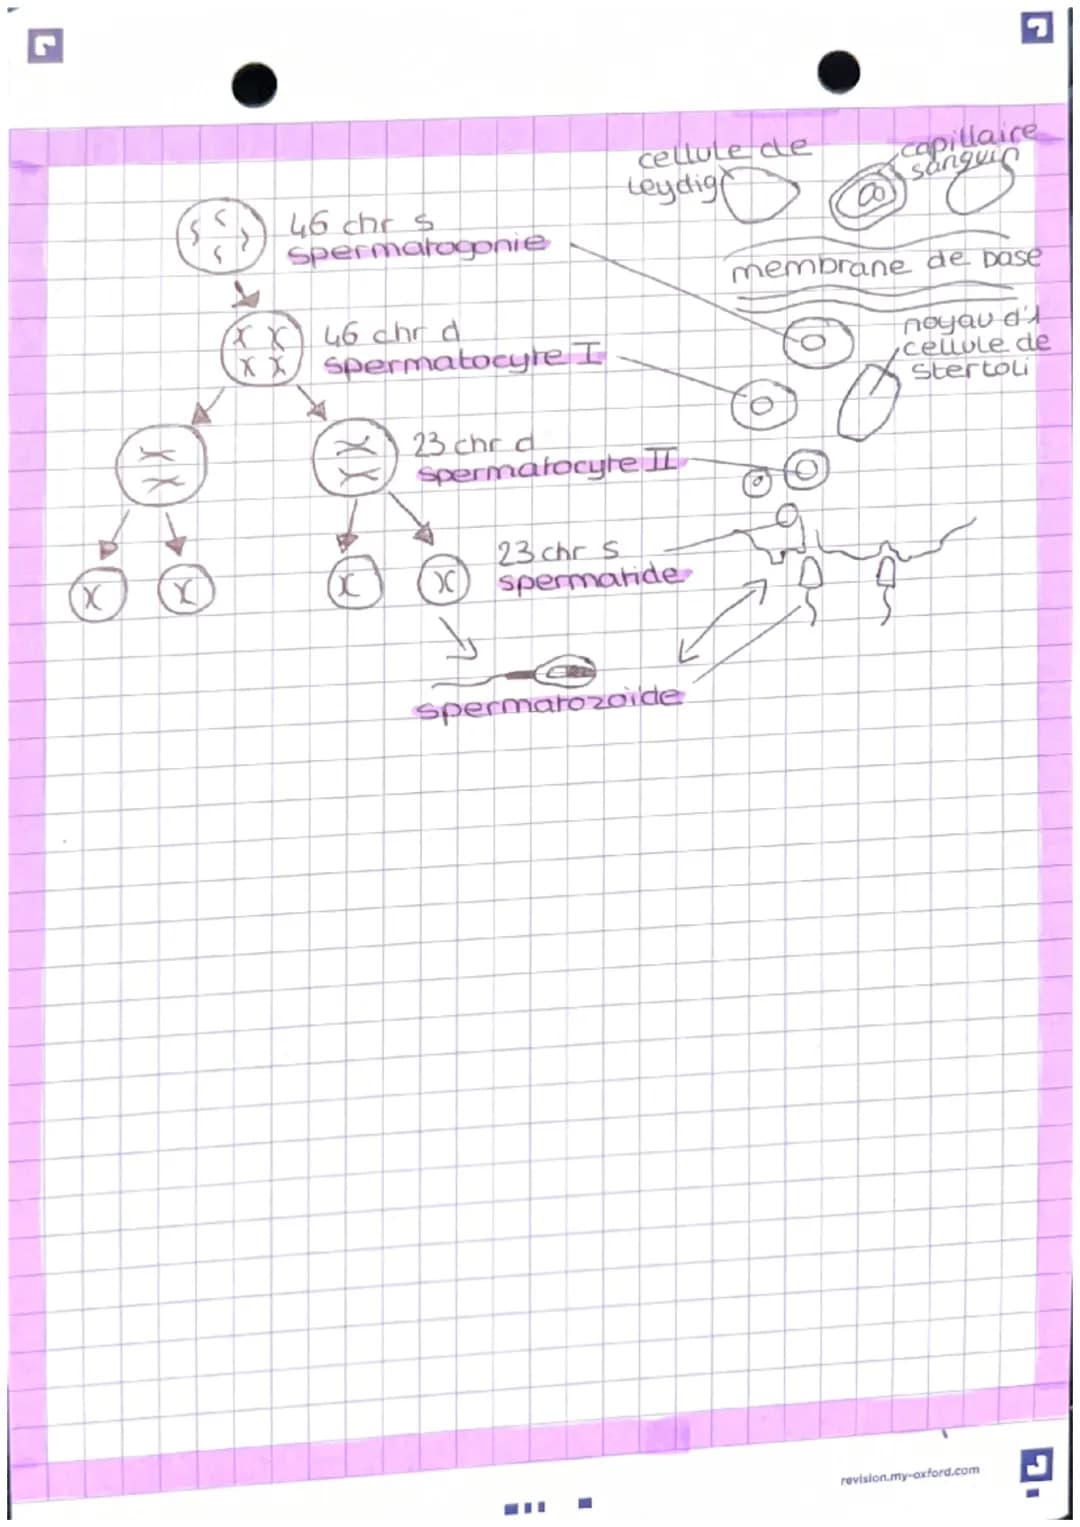 cellule de
Leydig
capillaire
sanguin
46 chr s
spermatogonie
membrane de base
46 chr d
spermatocyte I
noyau d'1
cellule de
Stertoli
23 chr d
spermatocyte II
23 chr s
spermatide
spermatozoïde
revision.my-oxford.com